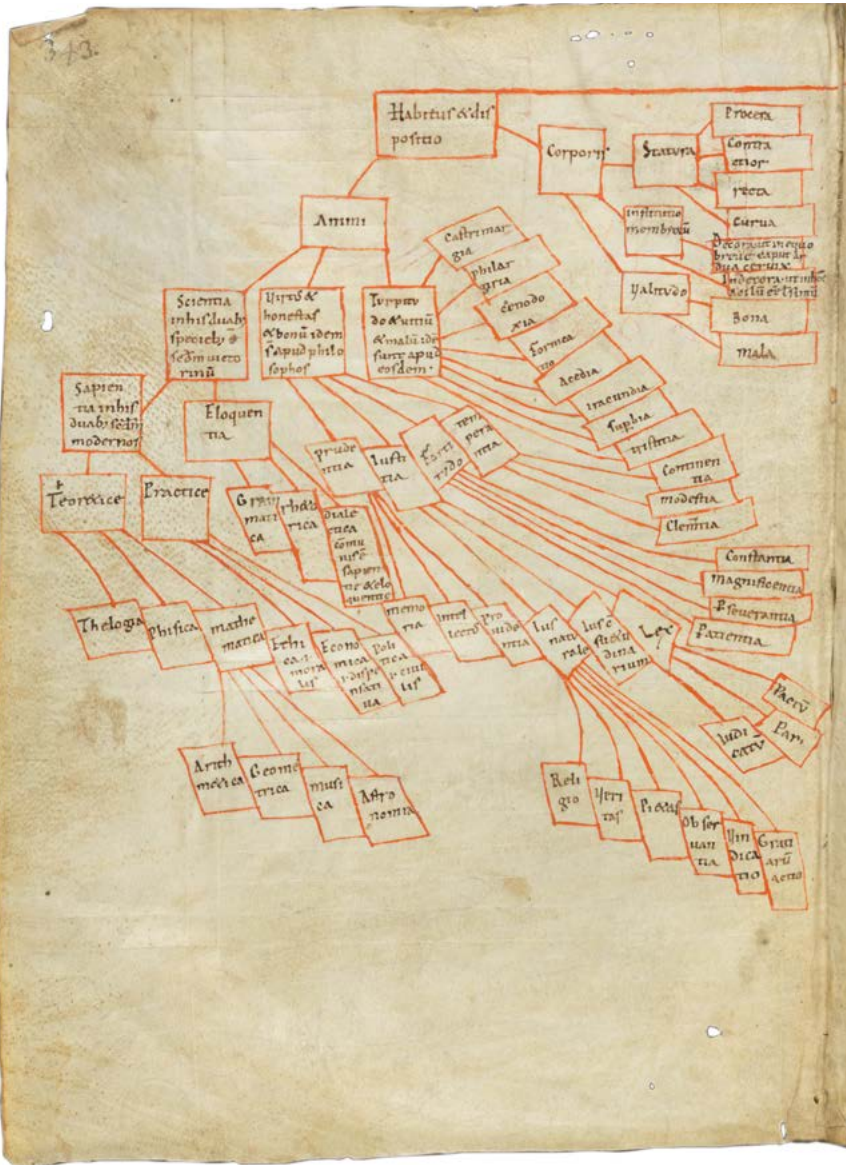 343.
Habitus & dis
positio
Corporis
Statura
Procera
Contra
ctior
recta
curva
membrorū
Decora ut in equo
breve caput ar
dua cervix
Indecora
Valitudo
Bona
mala
Animi
Scientia
in his duab;
specieb; ē
scdm victo
rinū
Virtus &
honestas
& bonū idem
s̄ apud philo
sophos
Turpitu
do & vitiū
& malū idē
sunt apud
eosdem.
Castrimar
gia
philar
gria
cenodo
xia
fornica
tio
Acedia
iracundia
supbia
tristitia
Continen
tia
modestia
Clemtia
Constantia
Magnificentia
Pseverantia
Patientia
Sapien
tia in his
duab; scdm
modernos
Eloquen
tia
Prude
ntia
Iusti
tia
Forti
tudo
tem
pera
ntia
Teorice
Practice
Gram
matica
rhetorica
diale
ctica
cōmu
nis ē
sapien
tie & elo
quentie
Thelogia
Phisica
mathe
matica
Ethi
ca .i. mora
lis
Econo
mica
.i. dispe
nsativa
Poli
tica
.i. civi
lis
memo
ria
Intel
lectus
Pro
videntia
Ius
natu
rale
Ius c
suetu
dina
rium
Lex
Pactū
Pari
Iudi
catū
Arith
metica
Geome
trica
musi
ca
Astro
nomia
Reli
gio
Veri
tas
Pietas
Obser
vantia
Vin
dicatio
Grati
arū
actio